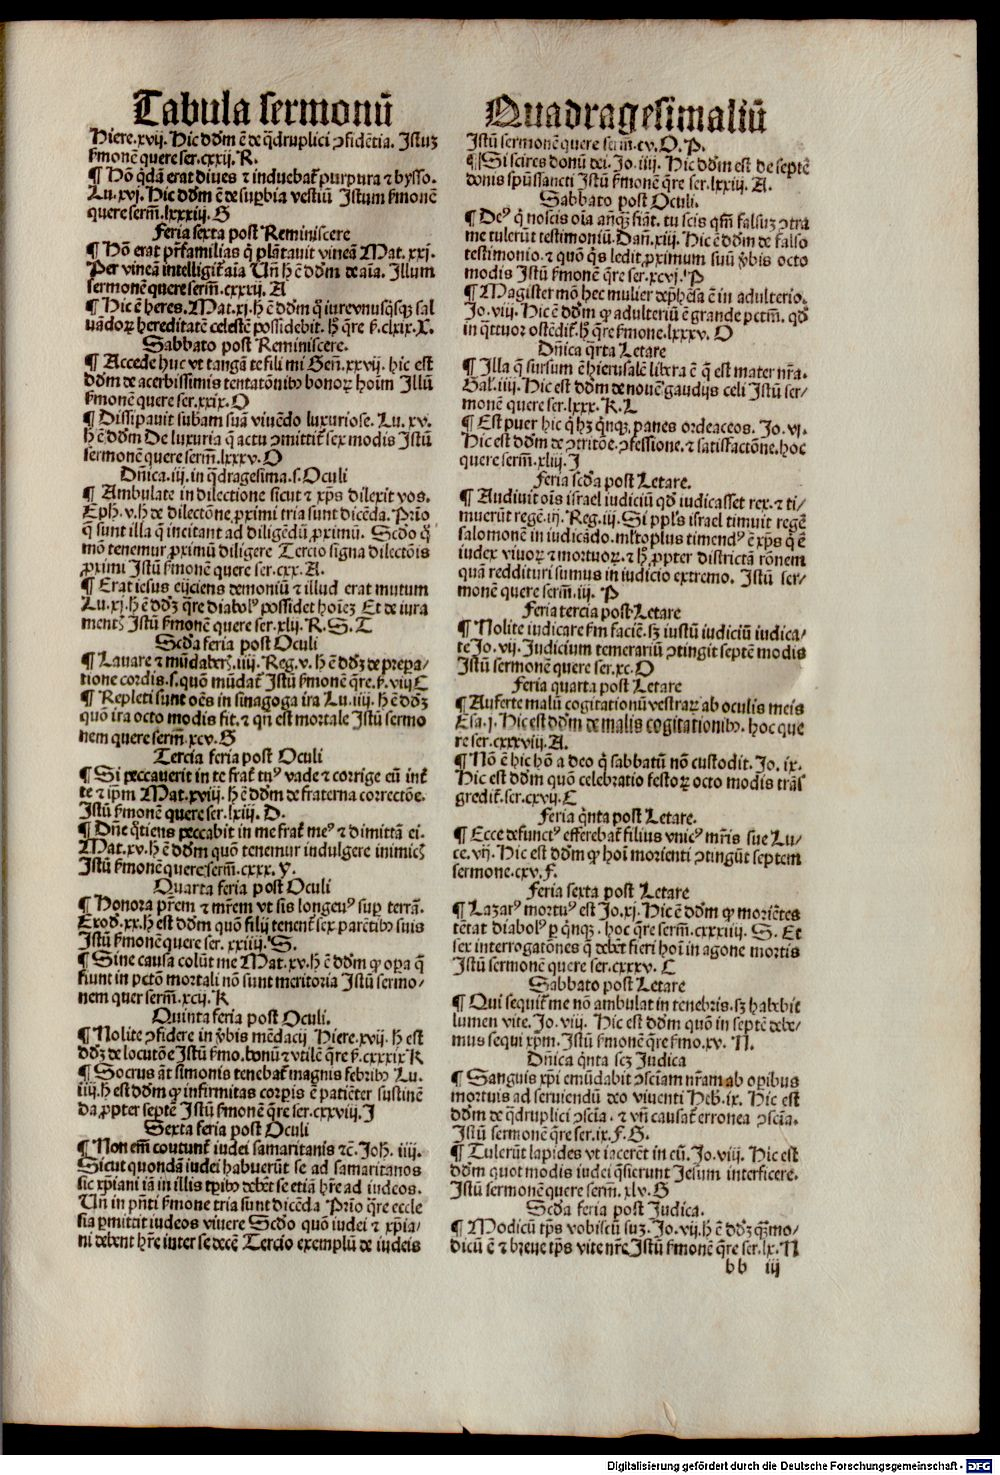 Tabula sermonū
Hiere.xvij. Hic dd̄m ē de q̄druplici ꝯfidētia. Istuꝫ
ẜmonē quere ser.cxxij. R.
¶ Hō q̄dā erat diues ⁊ induebat᷑ purpura ⁊ bysso.
Lu. xvj. Hic dd̄m ē de suꝑbia vestiū Istum ẜmonē
quere serm̄. lxxxiij. G
Feria sexta post Reminiscere
¶ Hō erat pr̄familias q̇ plātauit vineā Mat. xxj.
Per vineā intelligit᷑ aīa Vn̄ h̄ ē dd̄m de aīa. Illum
sermonē quere serm̄. cxxxij. A
¶ Hic ē heres. Mat. xj. h̄ ē dd̄m q̇ iure vnusq̇sqꝫ sal
uādoꝝ hereditatē celestē possidebit. h̄ q̄re ẜ. clxix. X.
Sabbato post Reminiscere.
¶ Accede huc vt tangā te fili mi Gen̄. xxvij. hic est
dd̄m de acerbissimis tentatōnibꝰ bonoꝝ hoīm Illū
ẜmonē quere ser. xxix. O
¶ Dissipauit subam̄ suā viuēdo luxuriose. Lu. xv.
h̄ ē dd̄m De luxuria q̄ actu ꝯmittit᷑ sex modis Istū
sermonē quere serm̄. lxxxv. O
Dn̄ica. iij. in q̄dragesima. s. Oculi
¶ Ambulate in dilectione sicut ⁊ xp̄s dilexit vos.
Eph̄. v. h̄ de dilectōne ꝓximi tria sunt dicēda. Prīo
q̄ sunt illa q̄ incitant ad diligēdū ꝓximū. Scd̄o q̇̄
mō tenemur ꝓximū diligere Tercio signa dilectōis
ꝓximi Istū ẜmonē quere ser. cxx. A.
¶ Erat iesus eijciens demoniū ⁊ illud erat mutum
Lu. xj. h̄ ē dd̄ꝫ q̄re diabolꝰ possidet hoīeꝫ Et de iura
mentꝭ Istū ẜmonē quere ser. xlij. R. S. T
Scd̄a feria post Oculi
¶ Lauare ⁊ mūdaberꝭ. iiij. Reg. v. h̄ ē dd̄ꝫ de prepa⸗
tione cordis. s. quō mūdat᷑ Istū ẜmonē q̄re. ẜ. viij C
¶ Repleti sunt oēs in sinagoga ira Lu. iiij. h̄ ē dd̄ꝫ
quō ira octo modis fit. ⁊ qn̄ est mortale Istū sermo
nem quere serm̄. xcv. G
Tercia feria post Oculi
¶ Si peccauerit in te frat᷑ tuꝰ vade ⁊ corrige eū int᷑
te ⁊ ip̄m Mat. xviij. h̄ ē dd̄m de fraterna correctōe.
Istū ẜmonē quere ser. lxiij. D.
¶ Dn̄e q̄tiens peccabit in me frat᷑ meꝰ ⁊ dimittā ei.
Mat. xv. h̄ ē dd̄m quō tenemur indulgere inimicꝭ
Istū ẜmonē quere serm̄. cxxx. Y.
Quarta feria post Oculi
¶ Honora pr̄em ⁊ mr̄em vt sis longeuꝰ suꝑ terrā.
Exod̄. xx. h̄ est dd̄m quō filij tenent᷑ sex parētibꝰ suis
Istū ẜmonē quere ser. xxiiij. S.
¶ Sine causa colūt me Mat. xv. h̄ ē dd̄m ꝙ oꝑa q̄
fiunt in pctō mortali nō sunt meritoria Istū sermo⸗
nem quer serm̄. xcij. K
Quinta feria post Oculi.
¶ Nolite ꝯfidere in v̇bis mēdacij Hiere. xvij. h̄ est
dd̄ꝫ de locutōe Istū ẜmo. bonū ⁊ vtilē q̄re ẜ. cxxxix K
¶ Socrus āt simonis tenebat᷑ magnis febribꝰ Lu.
iiij. h̄ est dd̄m ꝙ infirmitas corꝑis ē patiēter sustinē
da ꝓpter septē Istū ẜmonē q̄re ser. cxxviij. I
Sexta feria post Oculi
¶ Non em̄ coutunt᷑ iudei samaritanis ⁊c̄. Joh̄. iiij.
Sicut quondā iudei habuerūt se ad samaritanos
sic xp̄iani iā in illis tꝑibꝰ debēt se etiā hr̄e ad iudeos.
Vn̄ in pn̄ti ẜmone tria sunt dicēda Prīo q̄re eccle
sia ꝑmittit iudeos viuere Scd̄o quō iudei ⁊ xp̄ia⸗
ni debent hr̄e inter se decē Tercio exemplū de iudeis
Quadragesimaliū
Istū sermonē quere serm̄. cv. O. P.
¶ Si scires donū dei. Jo. iiij. Hic dd̄m est de septē
donis sp̄ussancti Istū ẜmonē q̄re ser. lxxiij. A.
Sabbato post Oculi.
¶ Deꝰ q̇ noscis oīa anq̄ꝫ fiāt. tu scis qm̄ falsuꝫ ꝯtra
me tulerūt testimoniū. Dan̄. xiij. Hic ē dd̄m de falso
testimonio. ⁊ quō q̇s ledit ꝓximum suū v̇bis octo
modis Istū ẜmonē quere ser. xcvj. P
¶ Magister mō hec mulier dep̄hēsa ē in adulterio.
Jo. viij. Hic ē dd̄m ꝙ adulteriū ē grande pctm̄. qd̄
in q̄ttuor ostēdit᷑. h̄ q̄re ẜmone. lxxxv. O
Dn̄ica q̄rta Letare
¶ Illa q̄ sursum ē hierusalē libera ē q̄ est mater nr̄a.
Gal̄. iiij. Hic est dd̄m de nouē gaudijs celi Istū ser⸗
monē quere ser. lxxx. K. L
¶ Est puer hic q̇ hꝫ q̇nqꝫ panes ordeaceos. Jo. vj.
Hic est dd̄m de ꝯtritōe. ꝯfessione. ⁊ satisfactōne. hoc
quere serm̄. xliij. I
Feria scd̄a post Letare.
¶ Audiuit oīs israel iudiciū qd̄ iudicasset rex. ⁊ ti⸗
muerūt regē. iij. Reg. iij. Si pp̄ls israel timuit regē
salomonē in iudicādo. ml̄toplus timendꝰ ē xp̄s q̇ ē
iudex viuoꝝ ⁊ mortuoꝝ. ⁊ h̄ ꝓpter districtā rōnem
quā reddituri sumus in iudicio extremo. Istū ser⸗
monē quere serm̄. iij. P
Feria tercia post Letare
¶ Nolite iudicare ẜm faciē. sꝫ iustū iudiciū iudica⸗
te Jo. vij. Judicium temerariū ꝯtingit septē modis
Istū sermonē quere ser. xc. O
Feria quarta post Letare
¶ Auferte malū cogitationū vestraꝝ ab oculis meis
Esa. j. Hic est dd̄m de malis cogitationibꝰ. hoc que
re ser. cxxxviij. A.
¶ Nō ē hic hō a deo q̇ sabbatū nō custodit. Jo. ix.
Hic est dd̄m quō celebratio festoꝝ octo modis trās
gredit᷑. ser. cxvij. C
Feria q̇nta post Letare.
¶ Ecce defunctꝰ efferebat᷑ filius vnicꝰ mr̄is sue Lu⸗
ce. vij. Hic est dd̄m ꝙ hoī morienti ꝯtingūt septem
sermone. cxv. F.
Feria sexta post Letare
¶ Lazarꝰ mortuꝰ est Jo. xj. Hic ē dd̄m ꝙ moriētes
tētat diabolꝰ ꝑ q̇nqꝫ. hoc q̄re serm̄. cxxxiiij. S. Et
sex interrogatōnes q̄ debēt fieri hoī in agone mortis
Istū sermonē quere ser. cxxxv. C
Sabbato post Letare
¶ Qui sequit᷑ me nō ambulat in tenebris. sꝫ habebit
lumen vite. Jo. viij. Hic est dd̄m quō in septē debe⸗
mus sequi xp̄m. Istū ẜmonē q̄re ẜmo. xv. N.
Dn̄ica q̇nta scꝫ Judica
¶ Sanguis xp̄i emūdabit ꝯsciam̄ nr̄am ab oꝑibus
mortuis ad seruiendū deo viuenti Heb̄. ix. Hic est
dd̄m de q̄druplici ꝯsciā. ⁊ vn̄ causat᷑ erronea ꝯsciā.
Istū sermonē q̄re ser. ix. F. G.
¶ Tulerūt lapides vt iacerēt in eū. Jo. viij. Hic est
dd̄m quot modis iudei q̄sierunt Jesum interficere.
Istū sermonē quere serm̄. xlv. G
Scd̄a feria post Judica.
¶ Modicū tp̄s vobiscū suꝫ. Jo. vij. h̄ ē dd̄ꝫ q̄ꝫ mo⸗
dicū ē ⁊ breue tp̄s vite nr̄e Istū ẜmonē q̄re ser. lx. N
bb iij
Digitalisierung gefördert durch die Deutsche Forschungsgemeinschaft - DFG